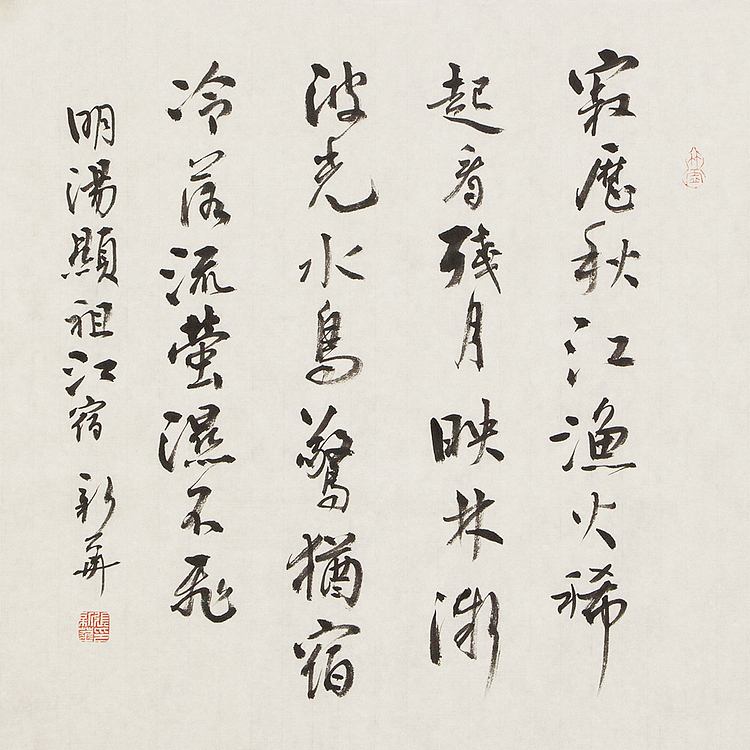 寂歷秋江漁火稀
起看殘月映林微
波光水鳥驚猶宿
冷落流螢濕不飛
明湯顯祖江宿 新華